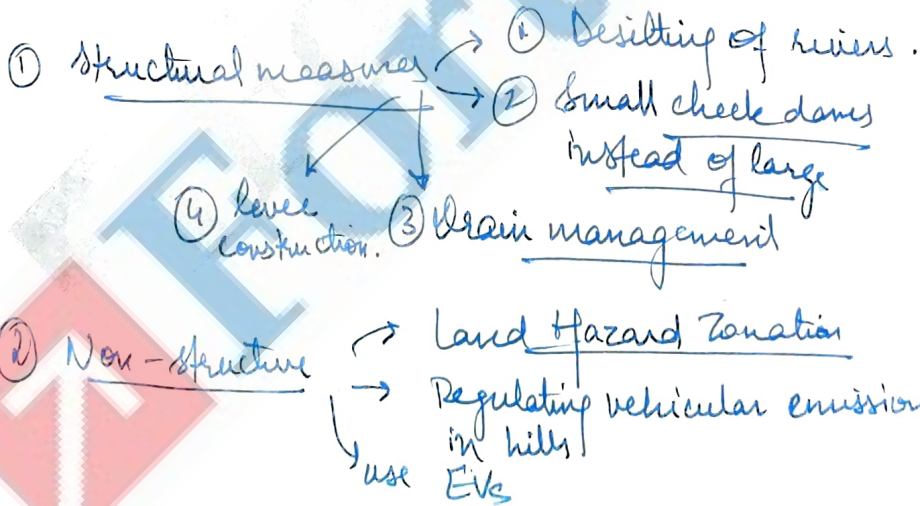 ① Structural measures
① Desilting of rivers.
② Small check dams
instead of large
④ levee
construction.
③ Drain management
② Non-structure
Land Hazard Zonation
Regulating vehicular emission
in hills
use EVs